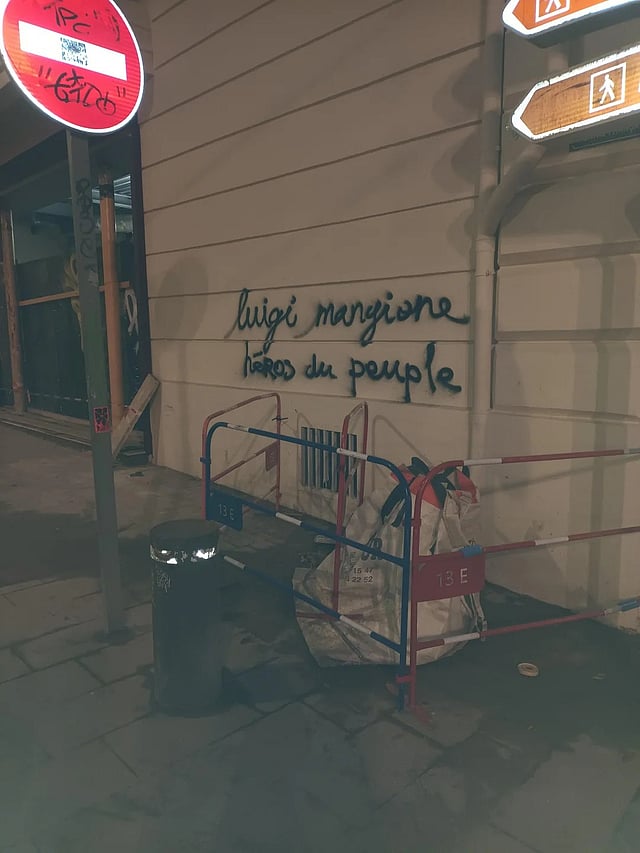 TPC
luigi mangione
héros du peuple
13 E
13 E
15 47
22 52